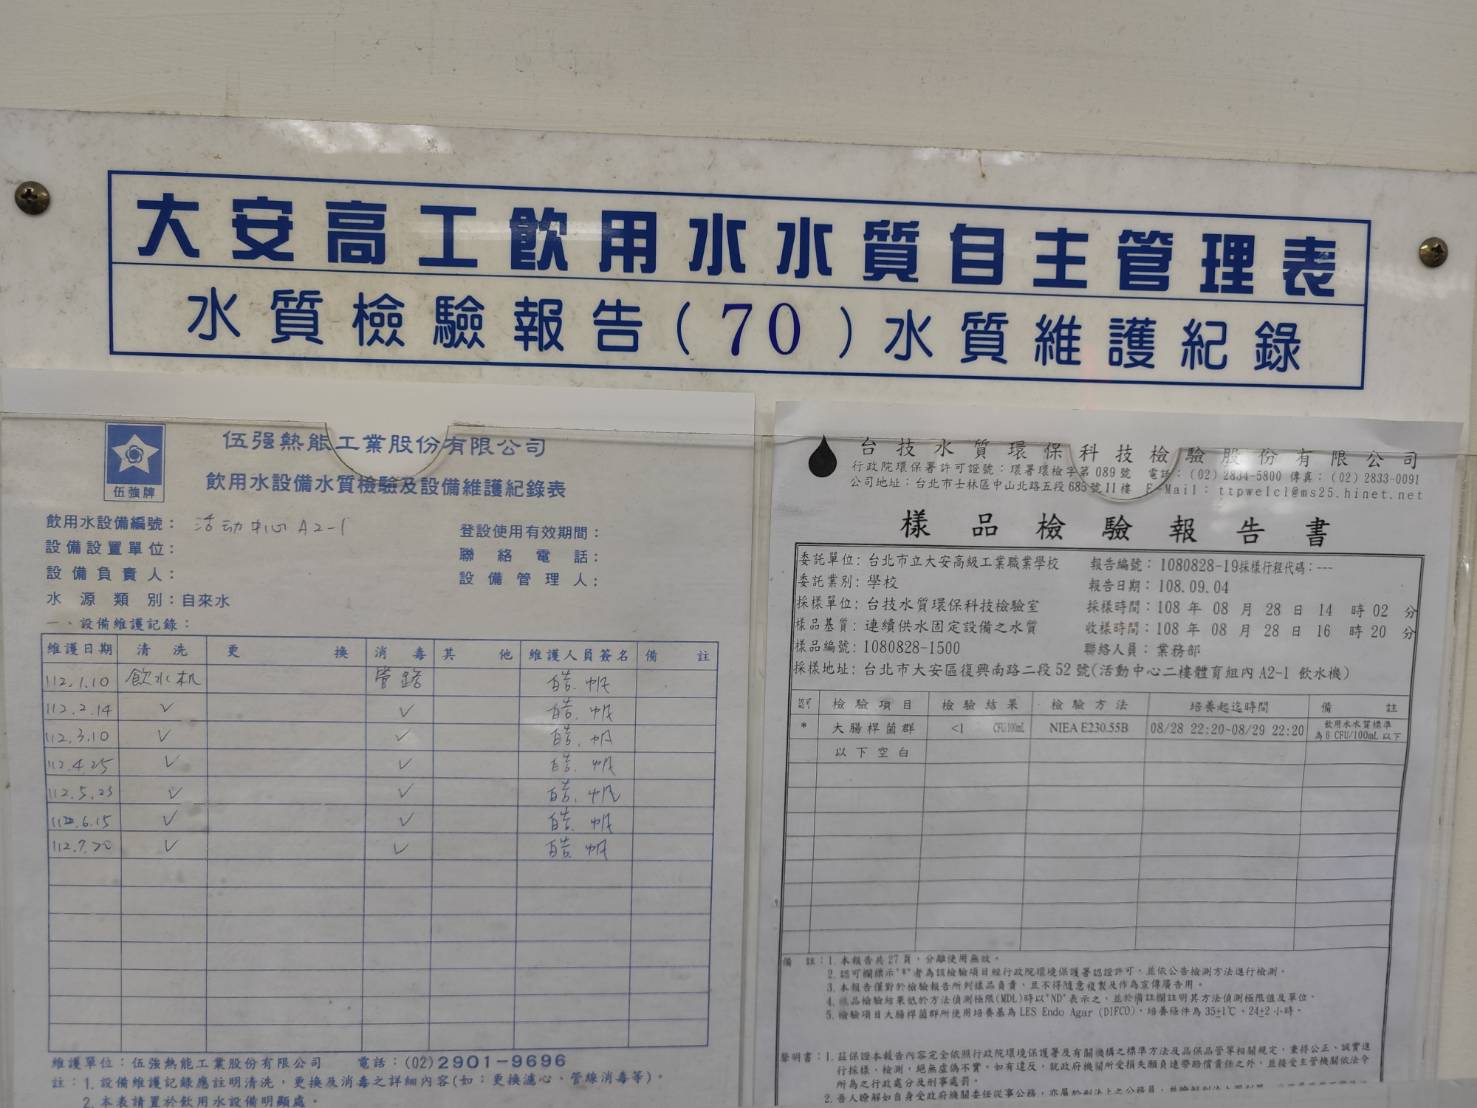 大安高工飲用水水質自主管理表
水質檢驗報告(70)水質維護紀錄
伍强熱能工業股份有限公司
飲用水設備水質檢驗及設備維護紀錄表
伍強牌
飲用水設備編號：活动中心 A2-1
登設使用有效期間：
設備設置單位：
聯絡電話：
設備負責人：
設備管理人：
水源類別：自來水
一、設備維護記錄：
維護日期 清洗 更換 消毒 其他 維護人員簽名 備註
112.1.10 飲水机 管路
112.2.14 ✓ ✓
112.3.10 ✓ ✓
112.4.25 ✓ ✓
112.5.23 ✓ ✓
112.6.15 ✓ ✓
112.7.20 ✓ ✓
維護單位：伍強熱能工業股份有限公司 電話：(02)2901-9696
註：1.設備維護記錄應註明清洗，更換及消毒之詳細內容(如：更換濾心、管線消毒等)。
2.本表請置於飲用水設備明顯處。
台技水質環保科技檢驗股份有限公司
行政院環保署許可證號：環署環檢字第089號 電話：(02)2834-5800 傳真：(02)2833-0091
公司地址：台北市士林區中山北路五段685號11樓 E-Mail：ttpwelcl@ms25.hinet.net
樣品檢驗報告書
委託單位：台北市立大安高級工業職業學校 報告編號：1080828-19採樣行程代碼：---
委託業別：學校 報告日期：108.09.04
採樣單位：台技水質環保科技檢驗室 採樣時間：108年08月28日14時02分
樣品基質：連續供水固定設備之水質 收樣時間：108年08月28日16時20分
樣品編號：1080828-1500 聯絡人員：業務部
採樣地址：台北市大安區復興南路二段52號(活動中心二樓體育組內A2-1飲水機)
認可 檢驗項目 檢驗結果 檢驗方法 培養起迄時間 備註
* 大腸桿菌群 <1 CFU/100mL NIEA E230.55B 08/28 22:20~08/29 22:20 飲用水水質標準為6 CFU/100mL以下
以下空白
備註：1.本報告共27頁，分離使用無效。
2.認可欄標示"*"者為該檢驗項目經行政院環境保護署認證許可，並依公告檢測方法進行檢測。
3.本報告僅對於檢驗報告所列樣品負責，且不得隨意複製及作為宣傳廣告用。
4.樣品檢驗結果低於方法偵測極限(MDL)時以"ND"表示之，並於備註欄註明其方法偵測極限值及單位。
5.檢驗項目大腸桿菌群所使用培養基為LES Endo Agar (DIFCO)，培養條件為35±1℃、24±2小時。
聲明書：1.茲保證本報告內容完全依照行政院環境保護署及有關機構之標準方法及品保品管等相關規定，秉持公正、誠實進
行採樣、檢測，絕無虛偽不實。如有違反，就政府機關所受損失願負連帶賠償責任之外，並接受主管機關依法令
所為之行政處分及刑事處罰。
2.吾人瞭解如自身受政府機關委任從事公務，亦屬於刑法上之公務員，